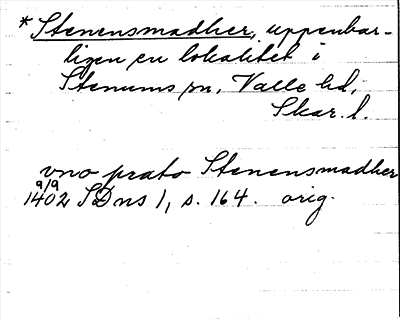 * Stenensmadher, uppenbar-
ligen en lokalitet i
Stenums sn, Valle hd,
Skar. l.
vno prato Stenensmadher
9/9
1402 SDns 1, s. 164. orig.